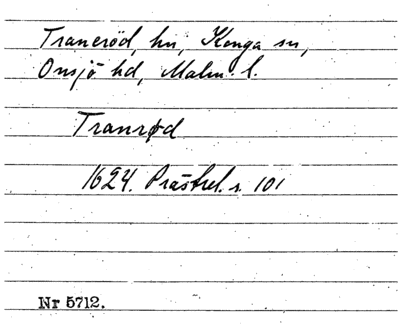 Traneröd, hn, Konga sn,
Onsjö hd, Malm. l.
Tranrød
1624. Prästrel. s. 101
Nr 5712.